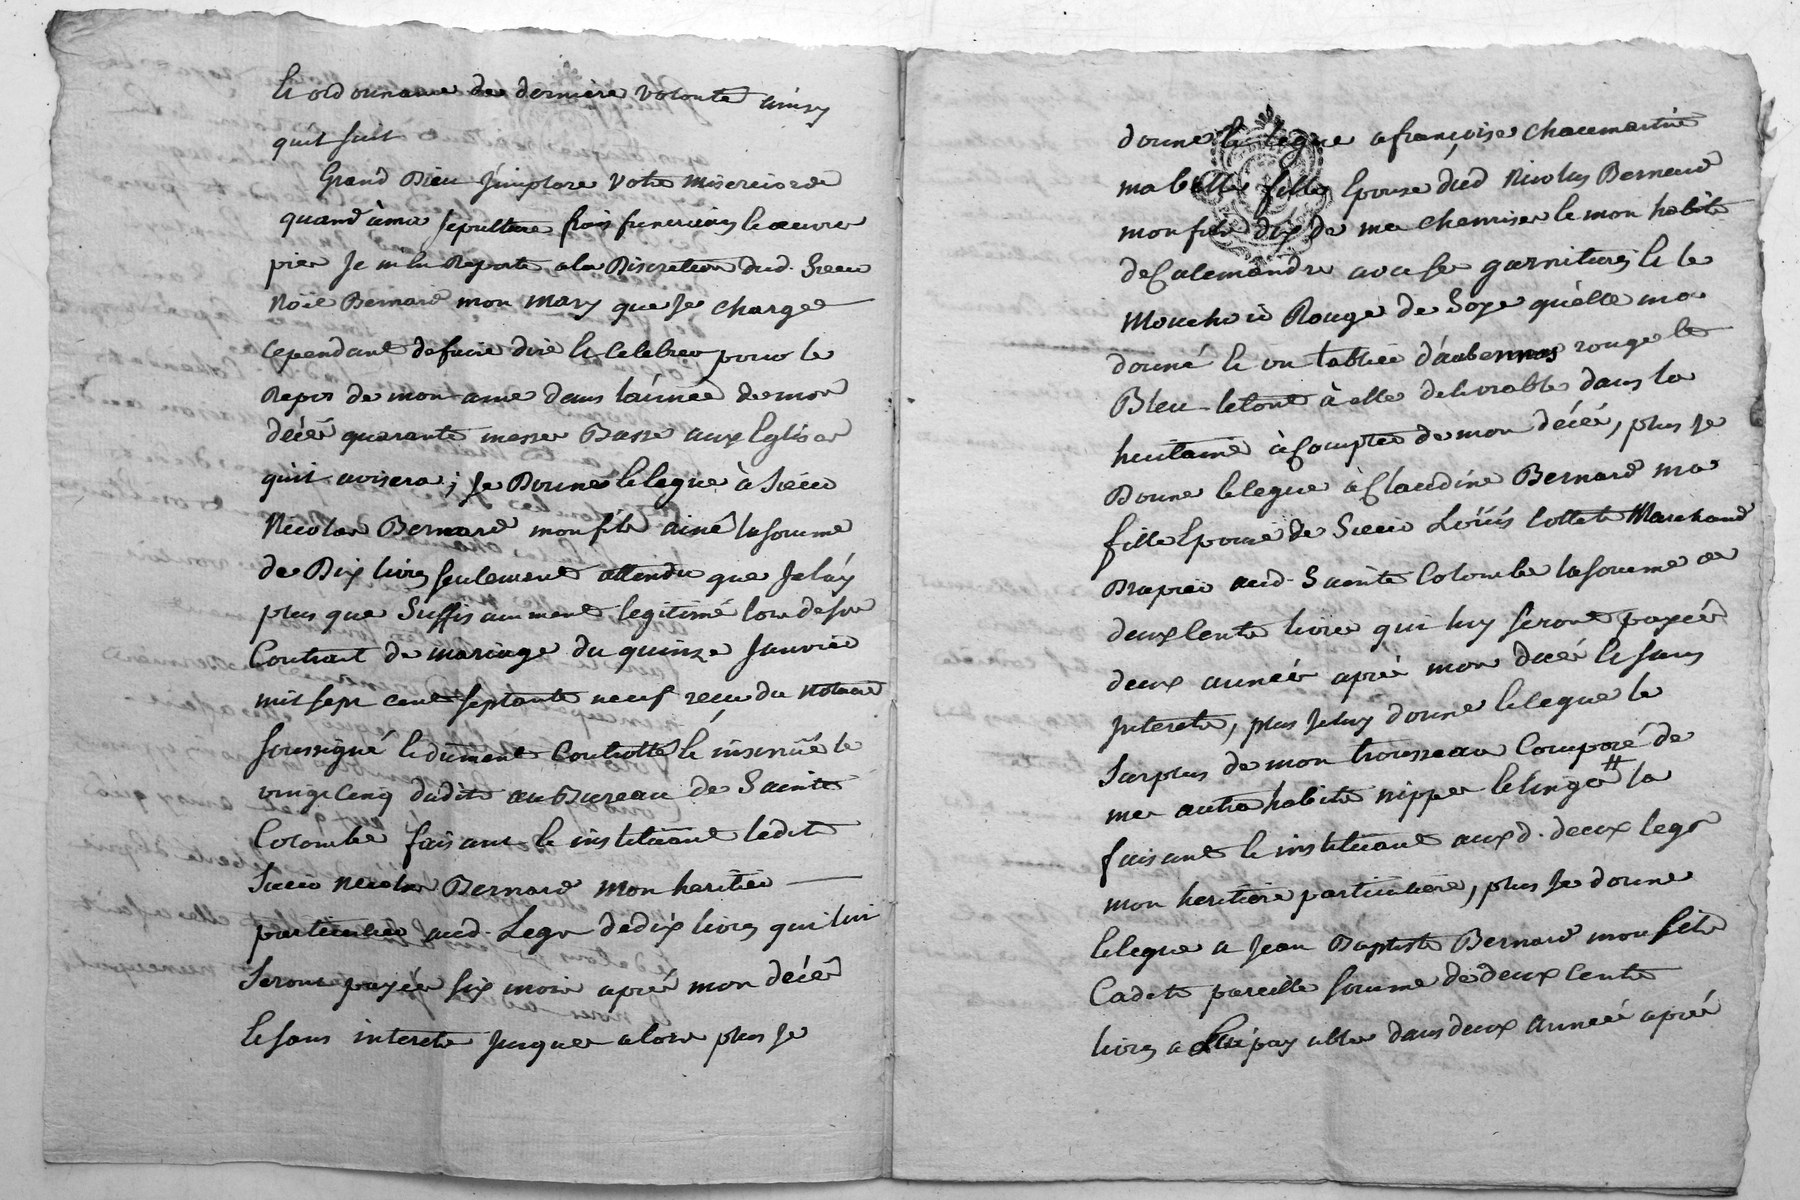 et ordonnance de derniere volonté ainsy
quil suit
Grand Dieu J'implore votre misericorde
quand à ma sepulture frais funeraires et oeuvres
pies Je m'en raporte a la Discretion dud. Sieur
Noël Bernard mon mary que Je charge
cependant de faire dire et celebrer pour le
repos de mon ame dans l'année de mon
décés quarante messes Basse aux Eglises
quil avisera ; Je Donne et legue à Sieur
Nicolas Bernard mon fils ainé la somme
de Dix livres seulement attendu que Je l'ay
plus que suffisamment legitimé lors de son
Contrat de mariage du quinze Janvier
mil sept cent septante neuf recu du notaire
soussigné et dument Controllé et insinué le
vingt cinq dudit au Bureau de Sainte
Colombe faisant et instituant ledit
Sieur Nicolas Bernard mon heritier
particulier aud. Legs de dix livres qui lui
seront payées six mois aprés mon décés
et sans interets Jusques alors plus Je
donne et legue a françoise chaumartin
ma belle fille Epouse dud Nicolas Bernard
mon fils dix de mes chemises et mon habit
de Calemandre avec ses garnitures et le
Mouchoir Rouge de Soye quelle m'a
donné et un tablier d'aubennas rouge et
Bleu le tout à elle delivrable dans la
huitaine à Compter de mon décés, plus Je
Donne et legue à Claudine Bernard ma
fille Epouse de Sieur Loüis Cottet Marchand
Drapier aud. Sainte Colombe la somme de
deux Cents livres qui luy seront payées
deux années aprés mon decés et sans
interets, plus Je luy donne et legue le
surplus de mon trousseau Composé de
mes autres habits nippes et linges # la
faisant et instituant auxd. deux legs
mon heritiere particuliere, plus Je donne
et legue a Jean Baptiste Bernard mon fils
Cadet pareille somme de deux Cents
livres a lui payable dans deux années aprés